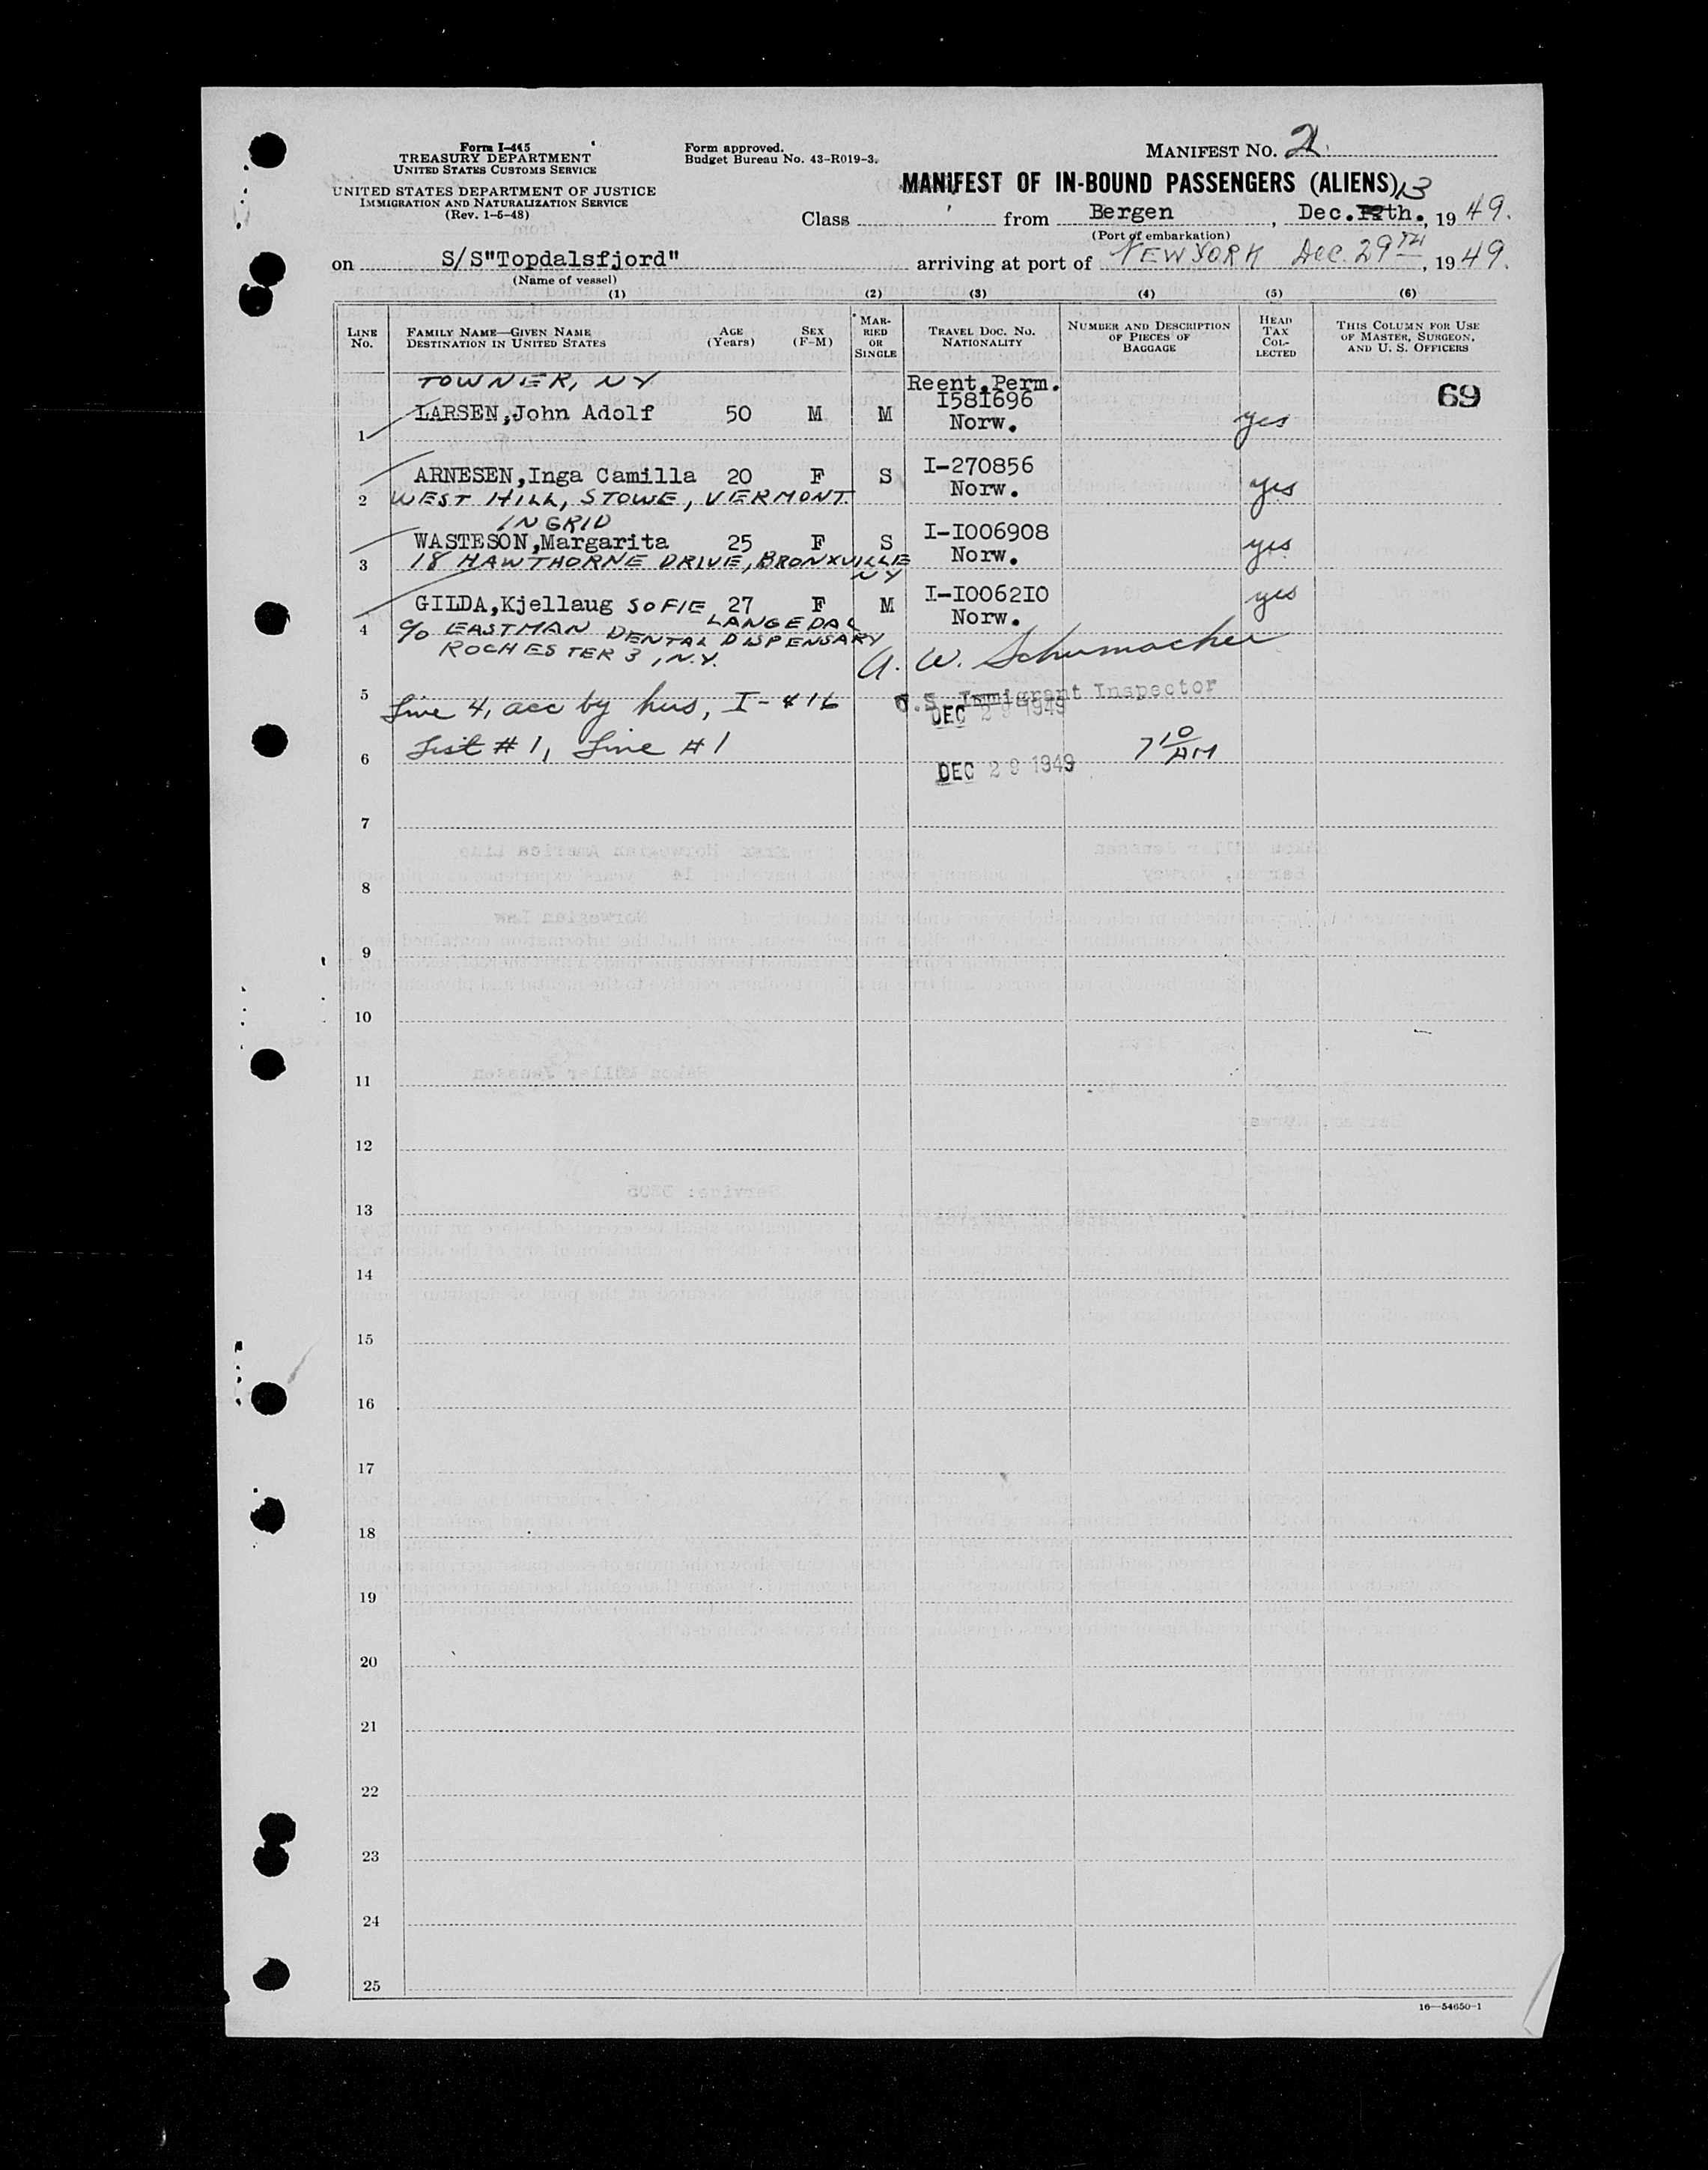 Form I-415
TREASURY DEPARTMENT
UNITED STATES CUSTOMS SERVICE
UNITED STATES DEPARTMENT OF JUSTICE
IMMIGRATION AND NATURALIZATION SERVICE
(Rev. 1-5-48)
Form approved.
Budget Bureau No. 43-R019-3.
MANIFEST NO. 2
MANIFEST OF IN-BOUND PASSENGERS (ALIENS)
13
Class from Bergen, Dec. th., 1949.
(Port of embarkation)
on S/S"Topdalsfjord" arriving at port of NEW YORK Dec. 29TH, 1949.
(Name of vessel)
(1) (2) (3) (4) (5) (6)
LINE No. FAMILY NAME—GIVEN NAME DESTINATION IN UNITED STATES AGE (Years) SEX (F-M) MARRIED OR SINGLE TRAVEL DOC. NO. NATIONALITY NUMBER AND DESCRIPTION OF PIECES OF BAGGAGE HEAD TAX COLLECTED THIS COLUMN FOR USE OF MASTER, SURGEON, AND U. S. OFFICERS
TOWNER, NY Reent.Perm. 69
1 LARSEN,John Adolf 50 M M I581696 Norw. yes
2 ARNESEN,Inga Camilla 20 F S I-270856 Norw. yes
WEST HILL, STOWE, VERMONT.
INGRID
3 WASTESON,Margarita 25 F S I-I006908 Norw. yes
18 HAWTHORNE DRIVE, BRONXVILLE
NY
4 GILDA,Kjellaug SOFIE 27 F M I-I0062I0 Norw. yes
LANGEDAL
c/o EASTMAN DENTAL DISPENSARY
ROCHESTER 3, N.Y.
A. W. Schumacher
U.S. Immigrant Inspector
5 Line 4, acc by hus, I-416
DEC 29 1949
6 List #1, Line #1
7 10 AM
DEC 29 1949
7
8
9
10
11
12
13
14
15
16
17
18
19
20
21
22
23
24
25
16—54650-1